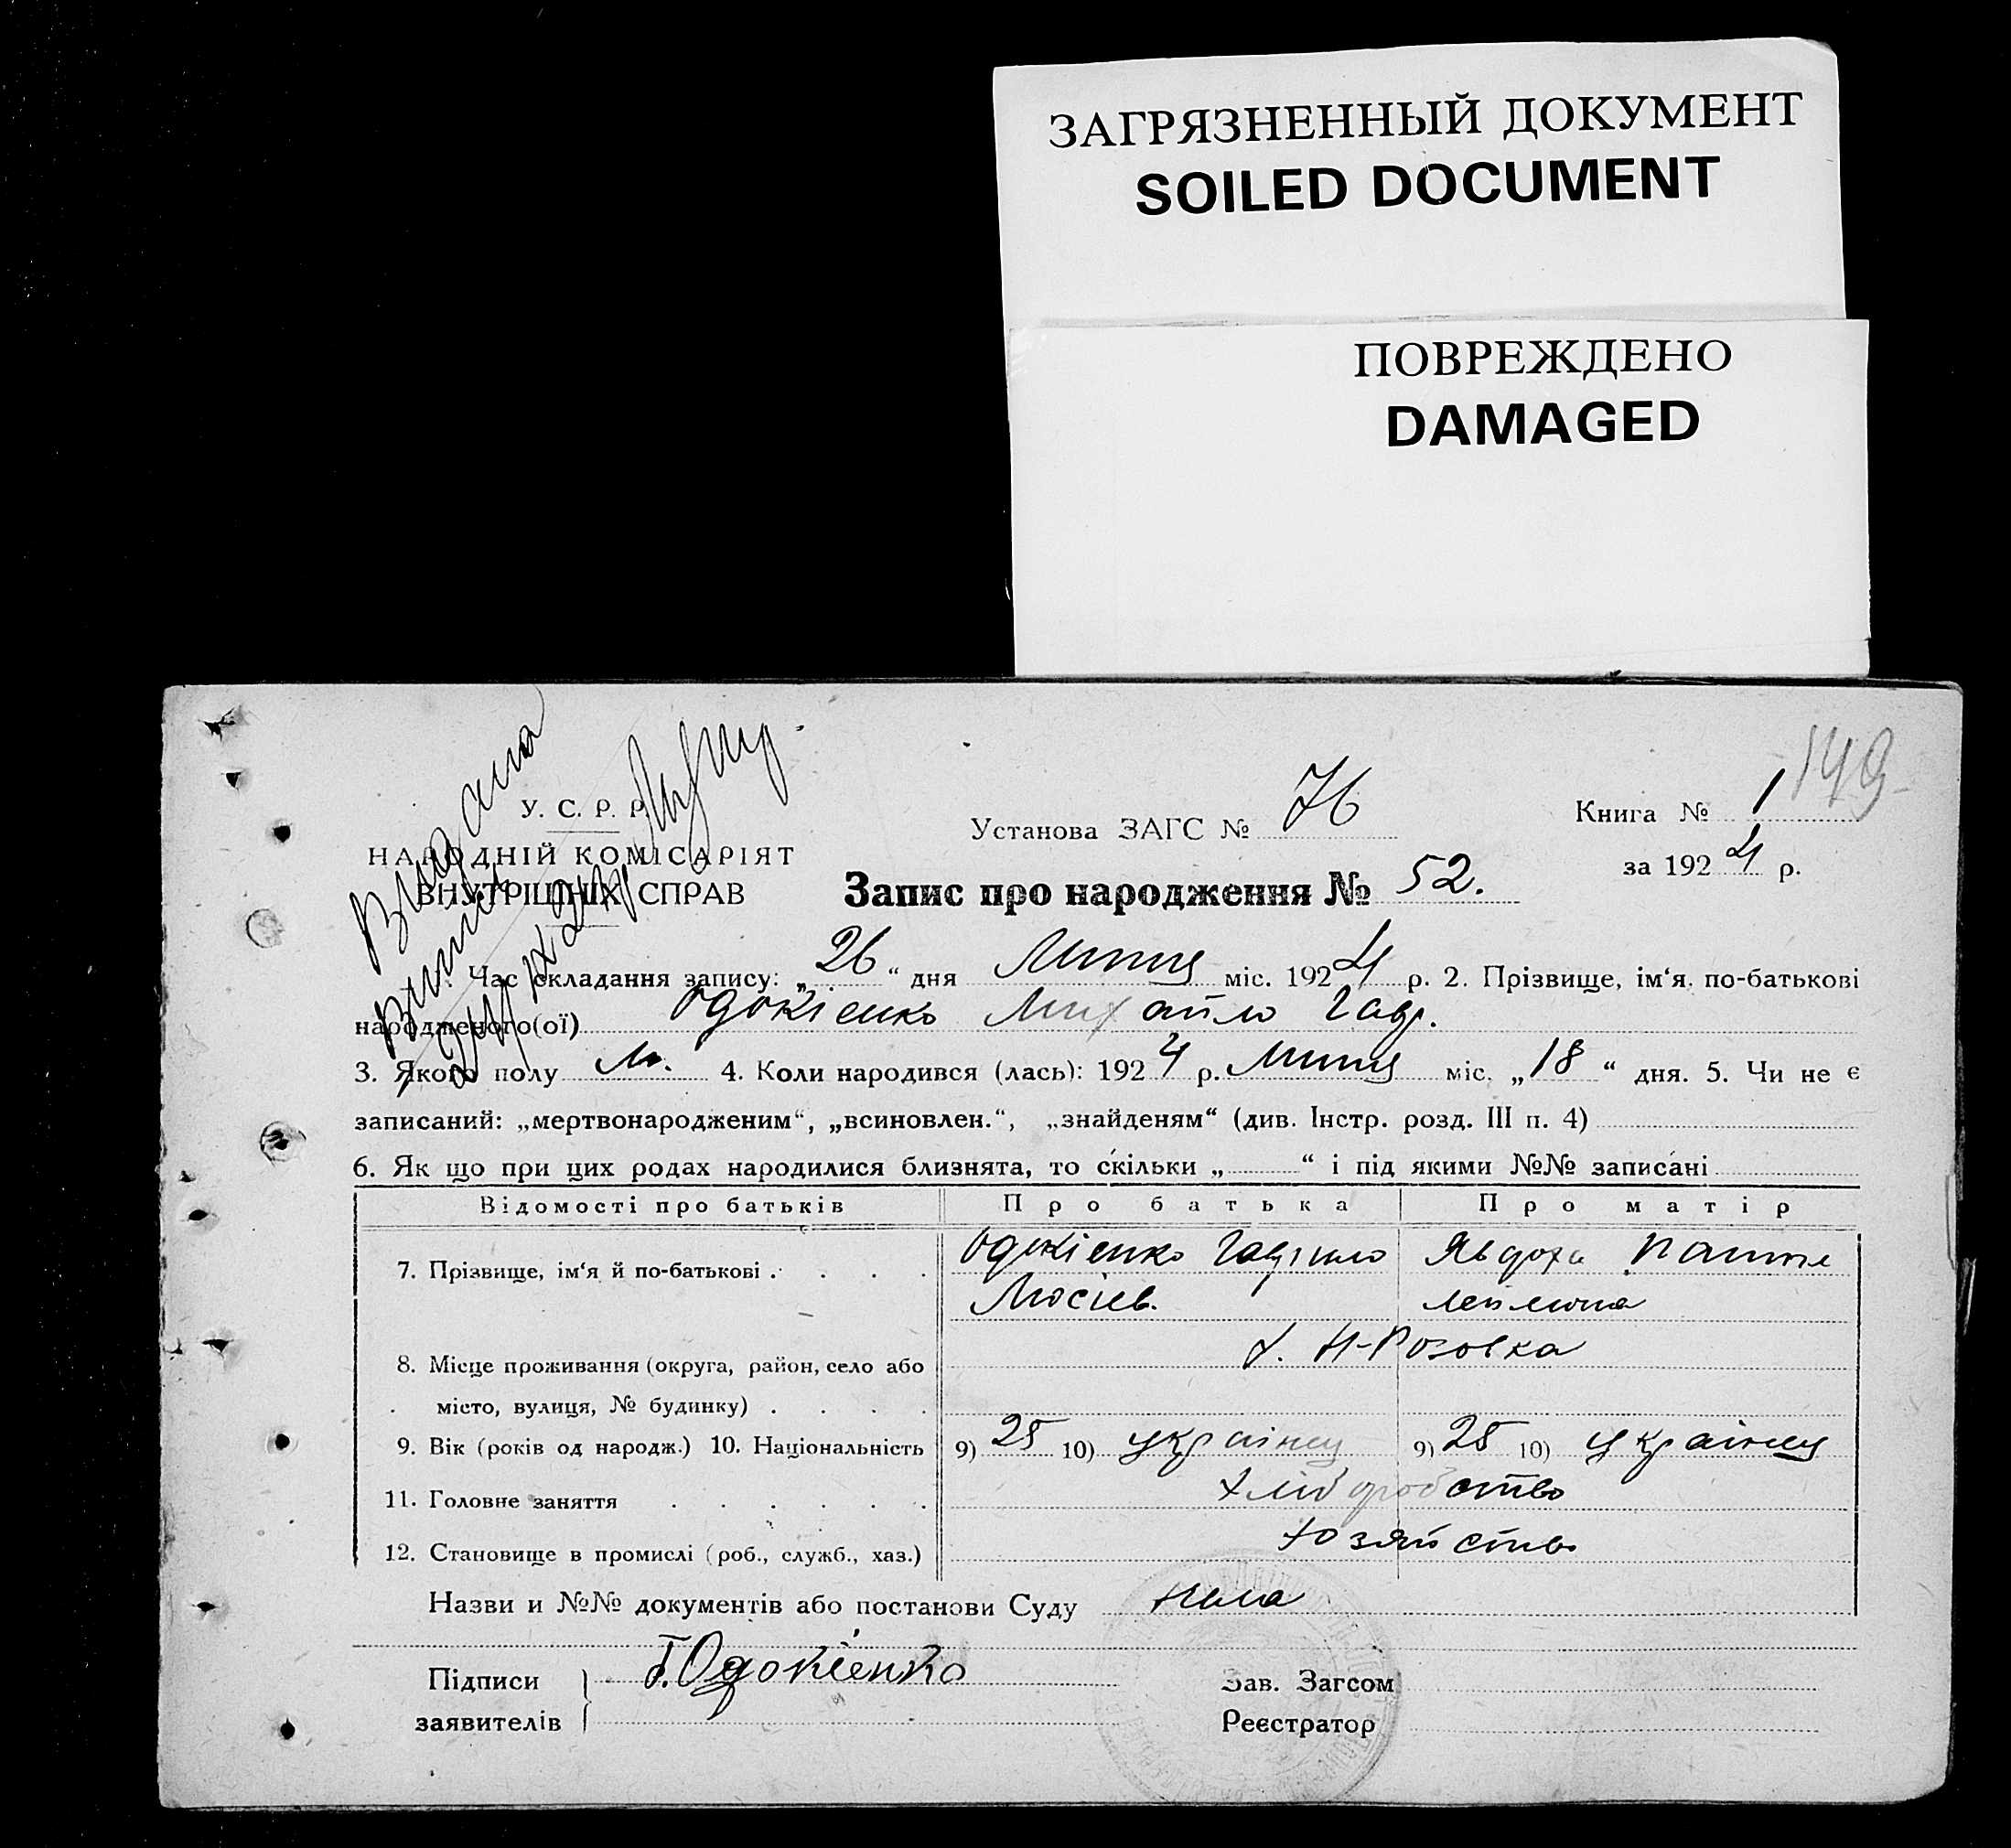 ЗАГРЯЗНЕННЫЙ ДОКУМЕНТ
SOILED DOCUMENT
ПОВРЕЖДЕНО
DAMAGED
149
Видана
У. С. Р. Р.
НАРОДНІЙ КОМІСАРІЯТ
ВНУТРІШНІХ СПРАВ
Установа ЗАГС № 76
Книга № 1
за 1924 р.
Запис про народження № 52.
Час складання запису: „26“ дня Липня міс. 1924 р. 2. Прізвище, ім‘я, по-батькові
народженого(ої) Одокієнко Михайло Гавр.
3. Якого полу М. 4. Коли народився (лась): 1924 р. Липня міс. „18“ дня. 5. Чи не є
записаний: „мертвонародженим“, „всиновлен.“, „знайденям“ (див. Інстр. розд. III п. 4)
6. Як що при цих родах народилися близнята, то скільки „ “ і під якими №№ записані
Відомості про батьків Про батька Про матір
7. Прізвище, ім‘я й по-батькові Одокієнко Гаврило Явдоха
Мосіев.
8. Місце проживання (округа, район, село або Н-Розовка
місто, вулиця, № будинку)
9. Вік (років од народж.) 10. Національність 9) 25 10) україну 9) 25 10) україну
11. Головне заняття хліборобство
12. Становище в промислі (роб., служб., хаз.) хозяйство
Назви и №№ документів або постанови Суду нема
Підписи Г. Одокіенко
заявителів
Зав. Загсом
Реєстратор